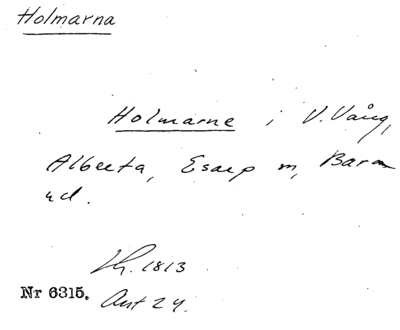 Holmarna
Holmarne i V. Vång,
Alberta, Esarp m, Bara
hd.
Lh. 1813
Nr 6315. Ant 24.